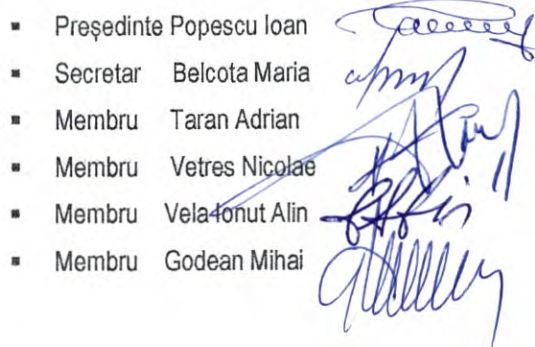 ▪ Președinte Popescu Ioan
▪ Secretar Belcota Maria
▪ Membru Taran Adrian
▪ Membru Vetres Nicolae
▪ Membru Vela Ionut Alin
▪ Membru Godean Mihai